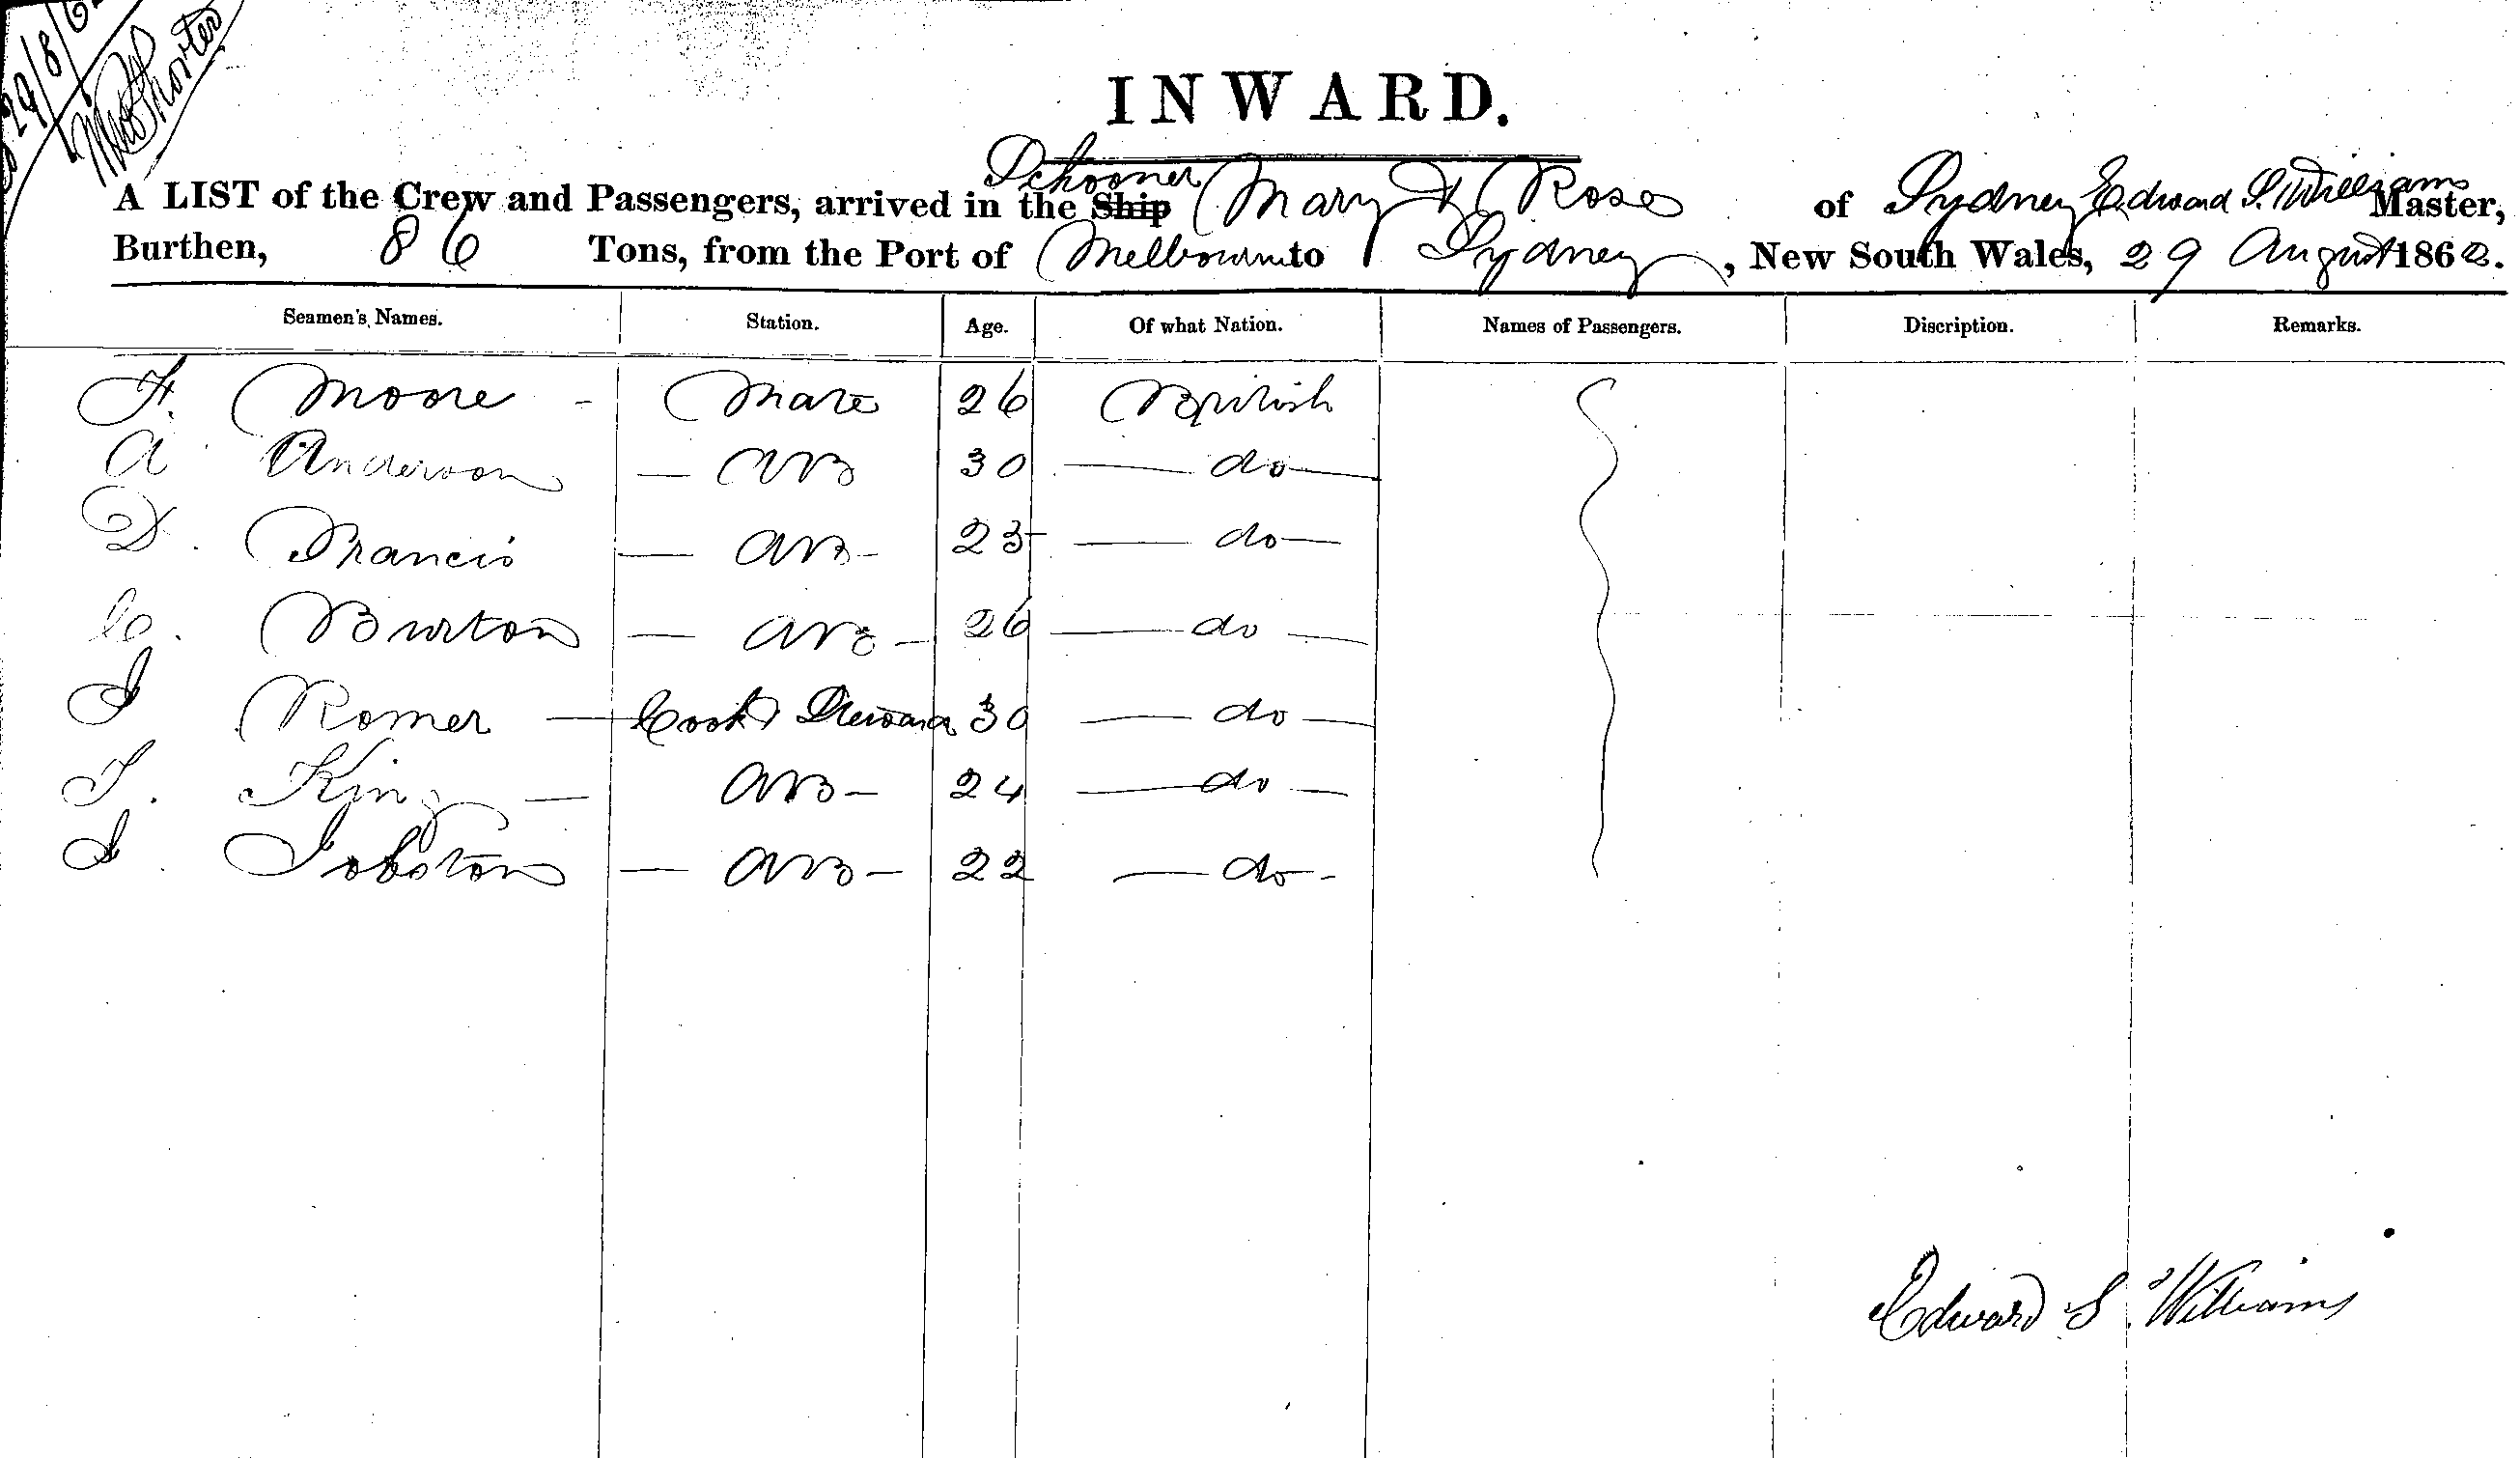 29/8/62
INWARD.
Schooner
A LIST of the Crew and Passengers, arrived in the Ship Mary & Rose of Sydney Edward S. Williams Master,
Burthen, 86 Tons, from the Port of Melbourne to Sydney, New South Wales, 29 August 1862.
Seamen's Names. Station. Age. Of what Nation. Names of Passengers. Discription. Remarks.
F. Moore - Mate 26 British
A Anderson — AB 30 — do —
D. Francis — AB - 23 — do —
C. Burton — AB - 26 — do —
J Romer — Cook & Steward 30 — do —
T. King — AB - 24 — do —
J. — AB - 22 — do -
Edward S. Williams